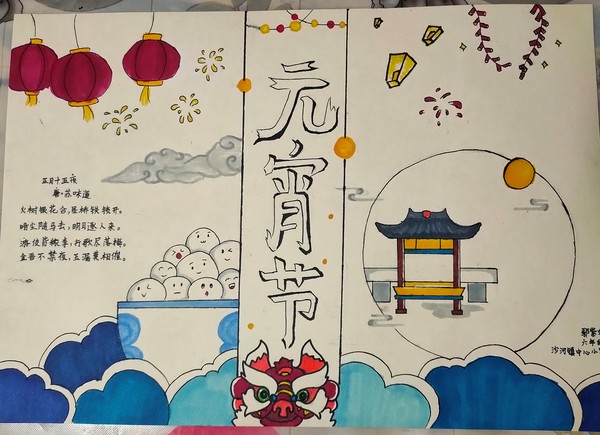 元宵节
正月十五夜
唐·苏味道
火树银花合,星桥铁锁开。
暗尘随马去,明月逐人来。
游伎皆秾李,行歌尽落梅。
金吾不禁夜,玉漏莫相催。
六年
沙河镇中心小